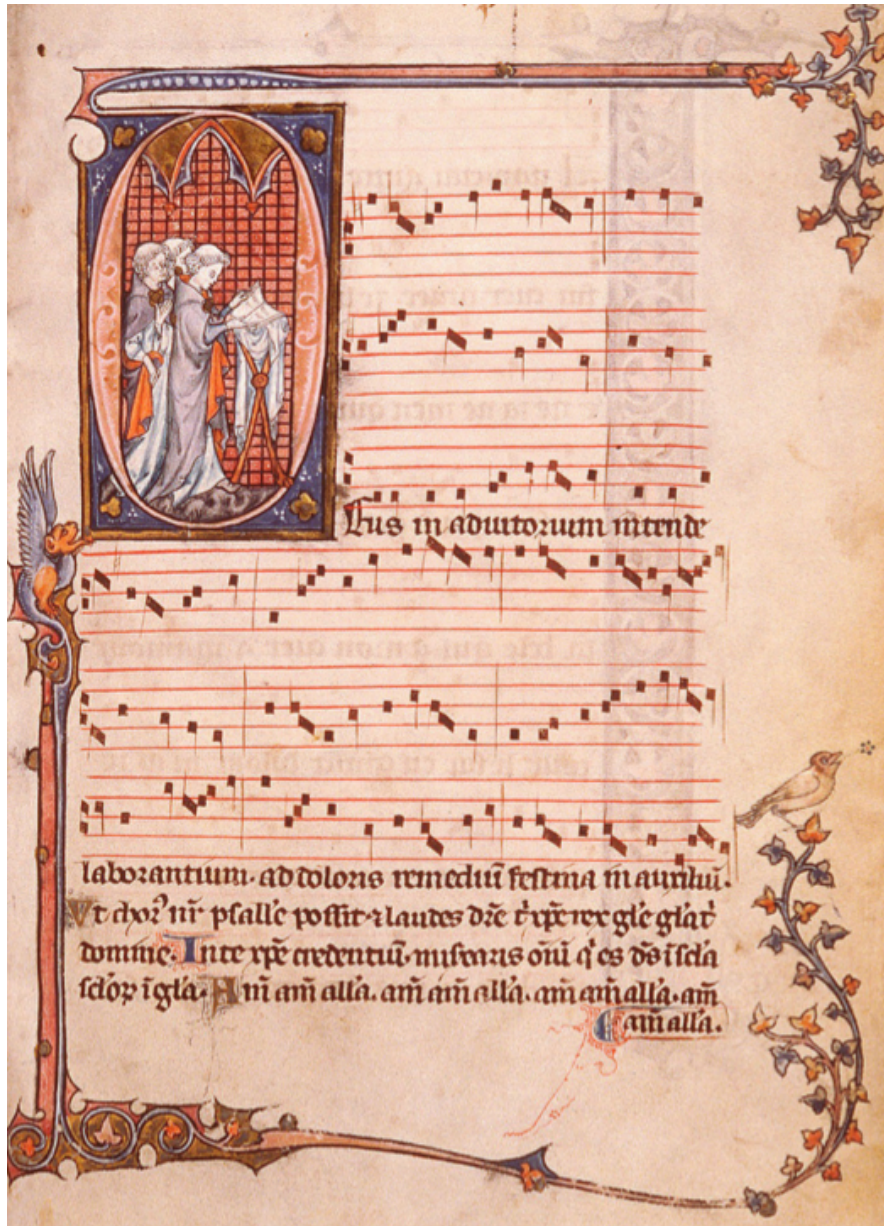 Deus in adiutorium intende
laborantium. ad doloris remediū festina in auxiliū.
Ut chor' nr̄ psalle possit ⁊ laudes dr̄e t' xp̄e rex gl'e gl'a t'
domine. In te xp̄e credentiū. misearis oīu q' es d's ī scl'a
scl'oꝝ ī gl'a. Am̄ am̄ all'a. am̄ am̄ all'a. am̄ am̄ all'a. am̄
am̄ all'a.